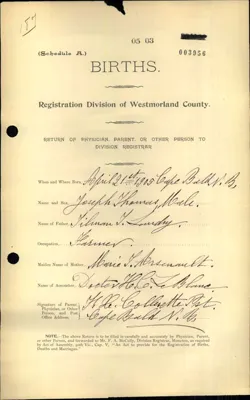 05 03
(Schedule A.)
003956
BIRTHS.
Registration Division of Westmorland County.
RETURN OF PHYSICIAN, PARENT, OR OTHER PERSON TO
DIVISION REGISTRAR
When and Where Born, April 21st 1905 Cape Bald N. B.
Name and Sex, Joseph Thomas, Male.
Name of Father, Tilman T. Landry
Occupation, Farmer
Maiden Name of Mother, Marie Arsenault
Name of Accoucheur, Doctor H. C. LeBlanc
Signature of Parent,
Physician or Other
Person, and Post
Office Address
Collette Pst.
Cape Bald N. B.
NOTE.—The above Return is to be filled in carefully and accurately by Physician, Parent,
or other Person, and forwarded to Division Registrar, Moncton, as required
by Act of Assembly, Cap. V. "An Act to provide for the Registration of Births,
Deaths and Marriages."